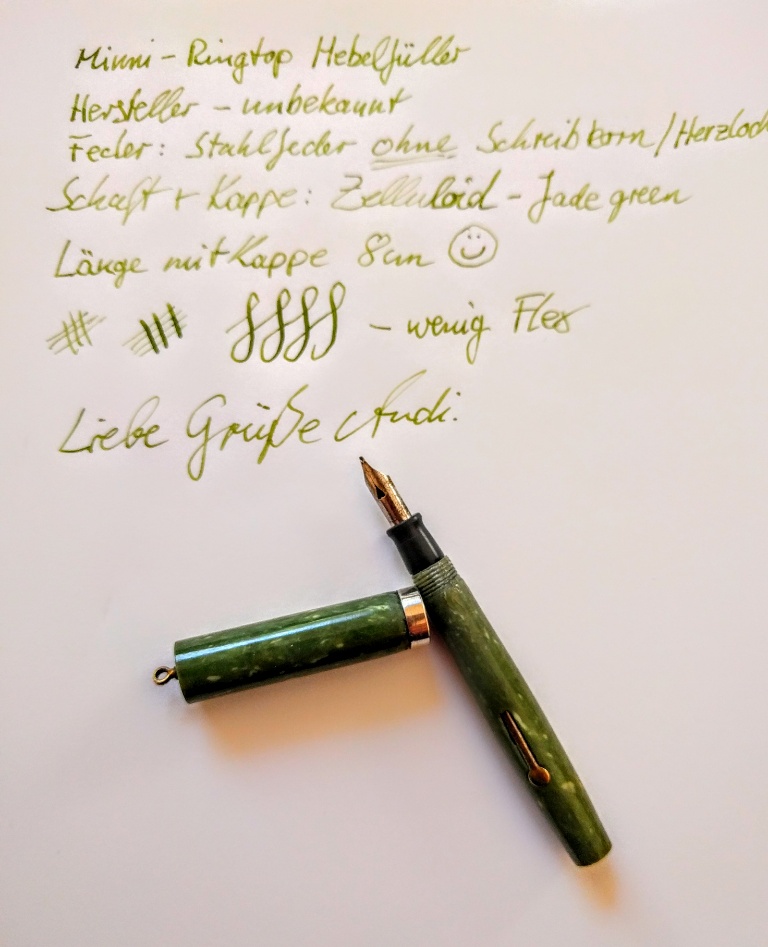 Minni - Ringtop Hebelfüller
Hersteller - unbekannt
Feder: Stahlfeder ohne Schreibkorn/Herzloch
Schaft + Kappe: Zelluloid - Jade green
Länge mit Kappe 8cm
- wenig Flex
Liebe Grüße Andi.